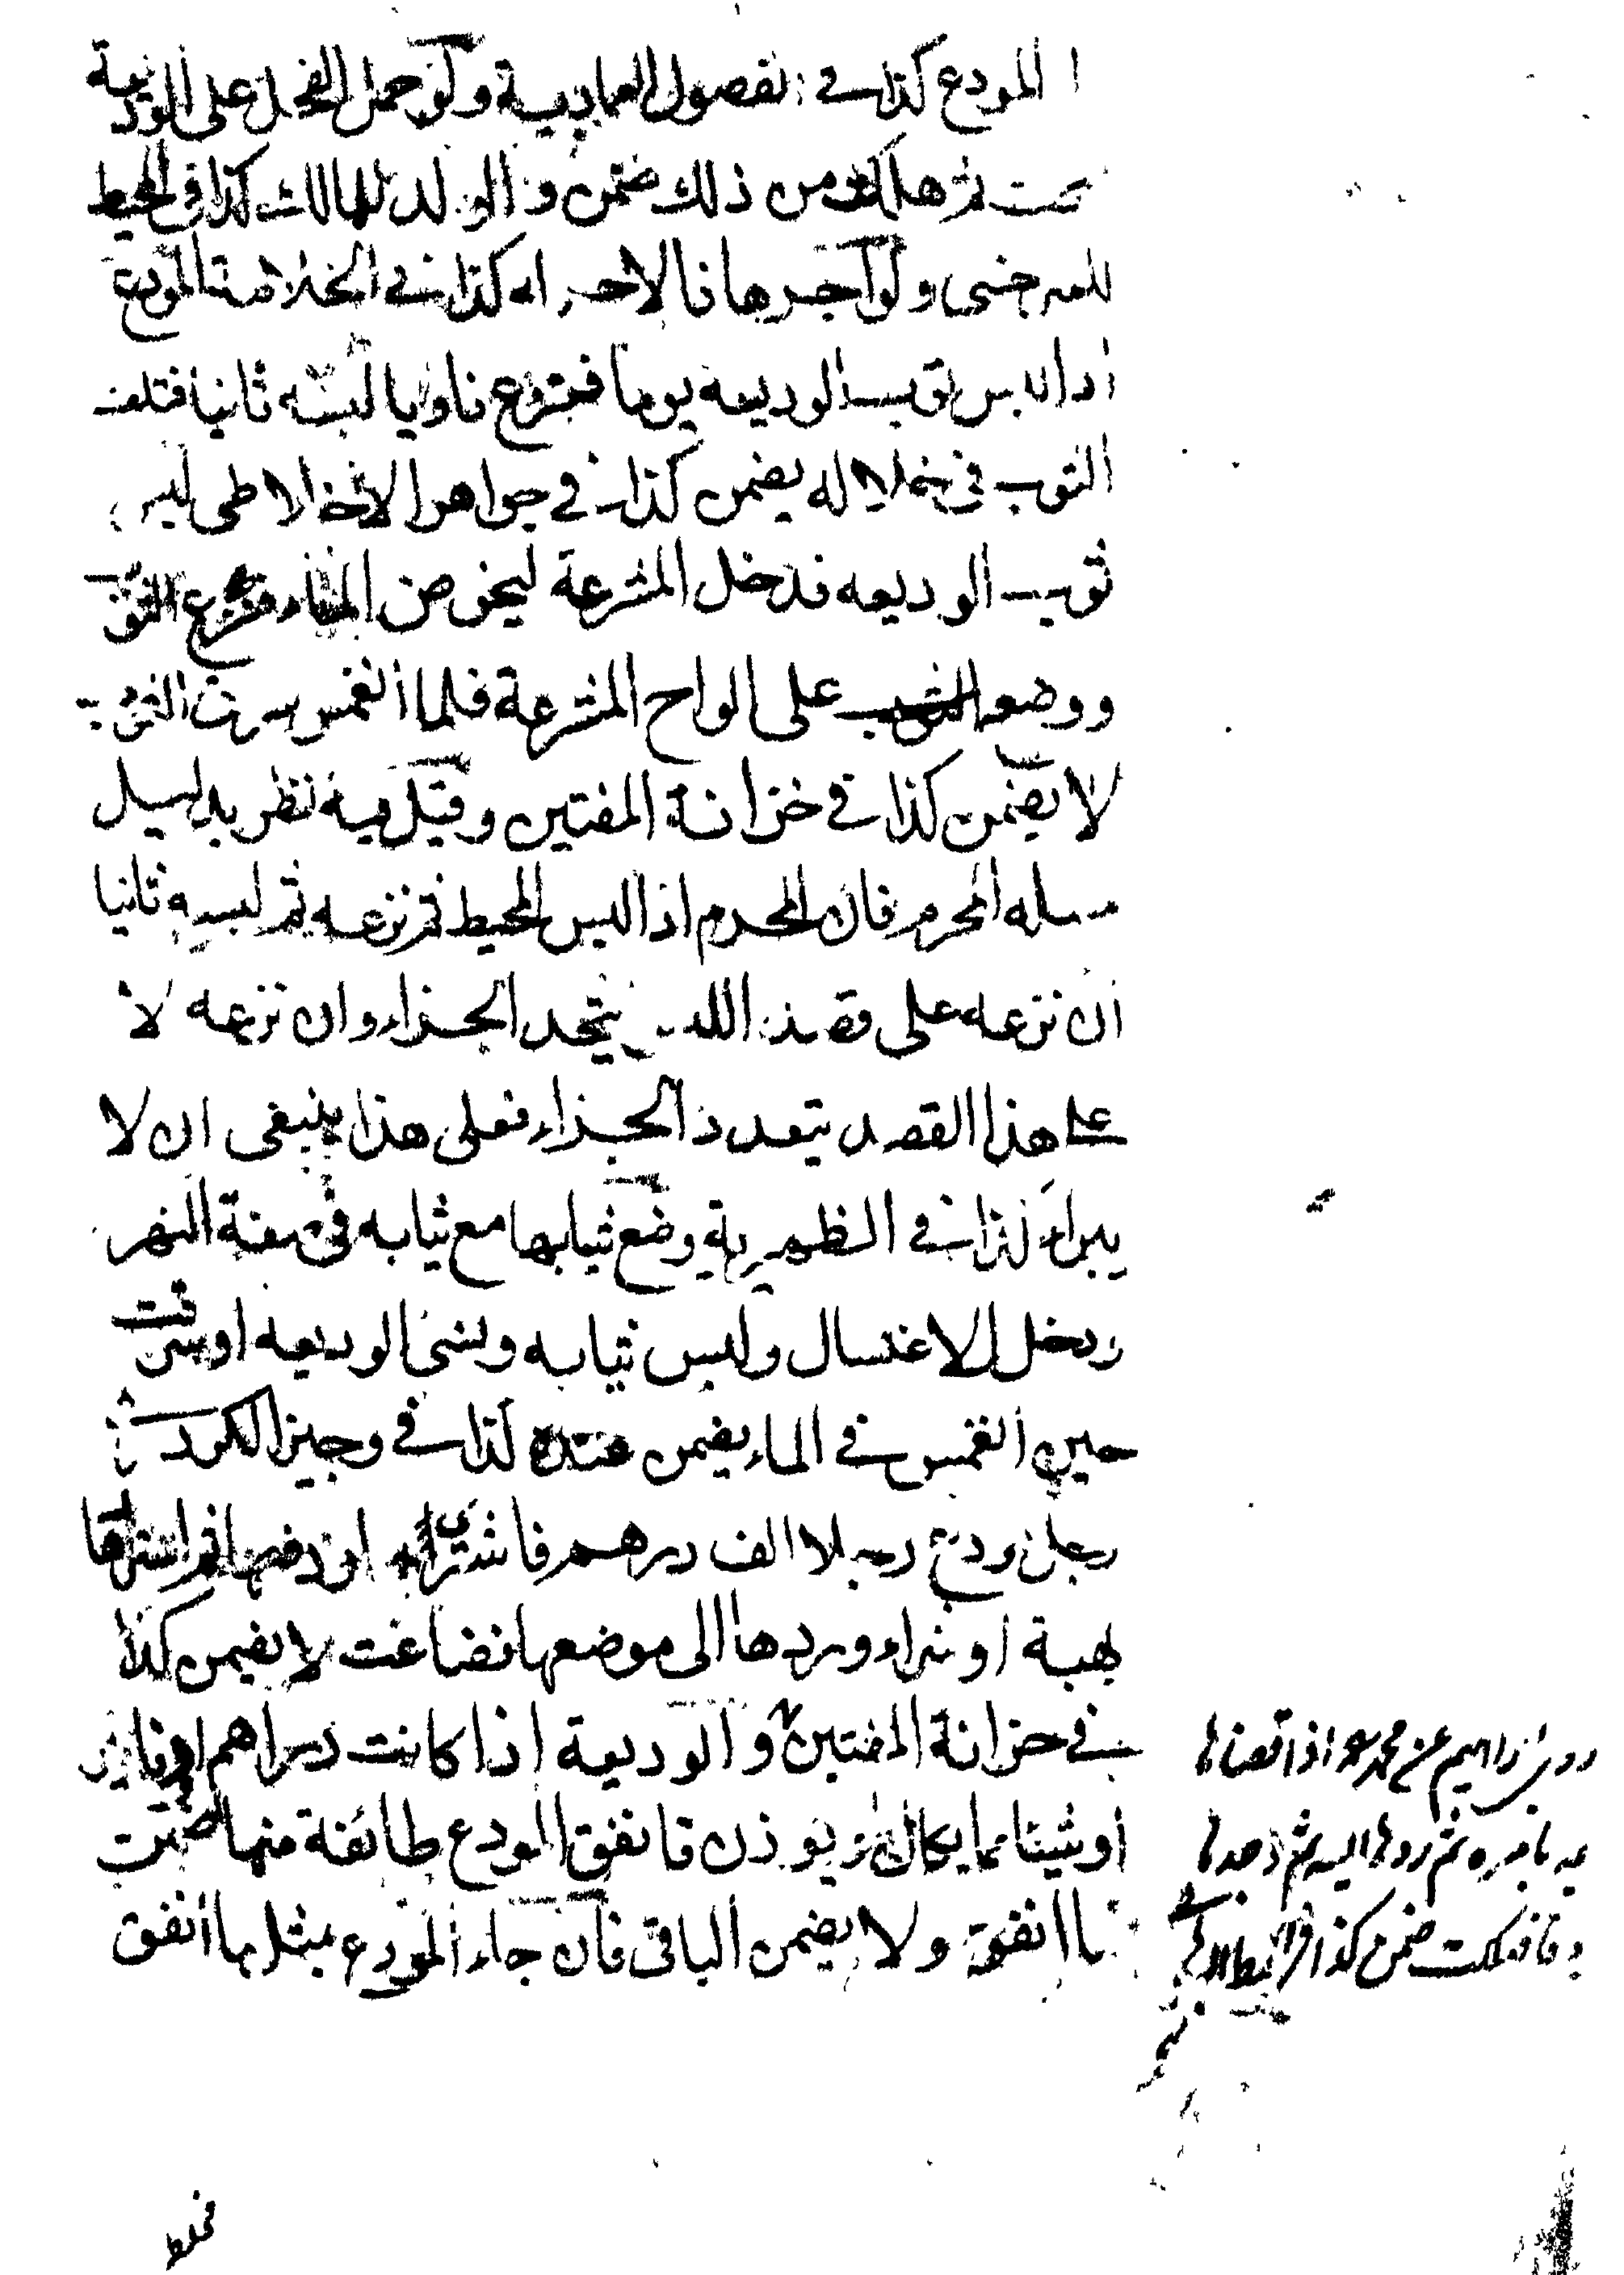 المودع كذا في الفصول العمادية ولو حمل الفحل على الوديعة
فنتجت ثم هلكت من ذلك ضمن والولد للمالك كذا في المحيط
للسرخسي ولو آجرها فالاجر له كذا في الخلاصة المودع
اذا لبس ثوب الوديعه يوما فنزع ناويا لبسه ثانيا فتلف
الثوب في خلاله يضمن كذا في جواهر الاخلاطي لبس
ثوب الوديعه فدخل المشرعة ليخوض الماء فنزع الثوب
ووضعه على الواح المشرعة فلما انغمس سرق الثوب
لا يضمن كذا في خزانة المفتين وقيل فيه نظر بدليل
مسئله المحرم فان المحرم اذا لبس المخيط ثم نزعه ثم لبسه ثانيا
ان نزعه على قصد اللبس يتحد الجزاء وان نزعه لا
على هذا القصد يتعدد الجزاء فعلى هذا ينبغي ان لا
يبراء كذا في الظهيرية وضع ثيابها مع ثيابه في ضفة النهر
ودخل للاغتسال ولبس ثيابه ونسي الوديعه او سرقت
حين انغمس في الماء يضمن عنده كذا في وجيز الكردري
رجل اودع رجلا الف درهم فاشترى به او دفعها ثم استردها
بهبة او شراء وردها الى موضعها فضاعت لا يضمن كذا
في خزانة المفتين والوديعة اذا كانت دراهم او دنانير
او شيئا مما يكال او يوزن فانفق المودع طائفة منها ضمن
ما انفق ولا يضمن الباقي فان جاء المودع بمثل ما انفق
ابراهيم عن محمد اذا قضاها
بامره ثم ردها اليه ثم وجدها
فهلكت ضمن كذا في
فخلط